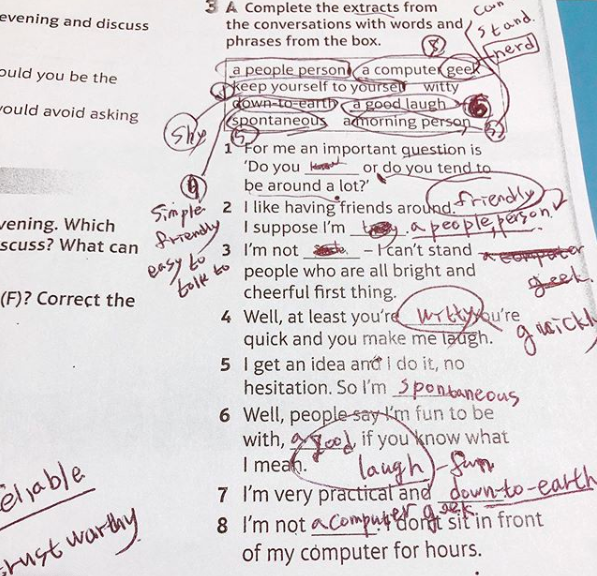 evening and discuss
ould you be the
ould avoid asking
vening. Which
scuss? What can
(F)? Correct the
eliable
trust worthy
3 A Complete the extracts from
the conversations with words and
phrases from the box.
can
stand.
nerd
8
a people person a computer geek
keep yourself to yourself witty
down-to-earth a good laugh 6
spontaneous a morning person
shy
5
simple
friendly
easy to
talk to
1 For me an important question is
'Do you ____ or do you tend to
be around a lot?'
2 I like having friends around. friendly
I suppose I'm a people person.
3 I'm not ____ – I can't stand a computer
geek.
people who are all bright and
cheerful first thing.
4 Well, at least you're witty you're
quick and you make me laugh. quickly
5 I get an idea and I do it, no
hesitation. So I'm spontaneous
6 Well, people say I'm fun to be
with, a good if you know what
I mean. laugh - fun
7 I'm very practical and down-to-earth
8 I'm not a computer geek. I don't sit in front
of my computer for hours.